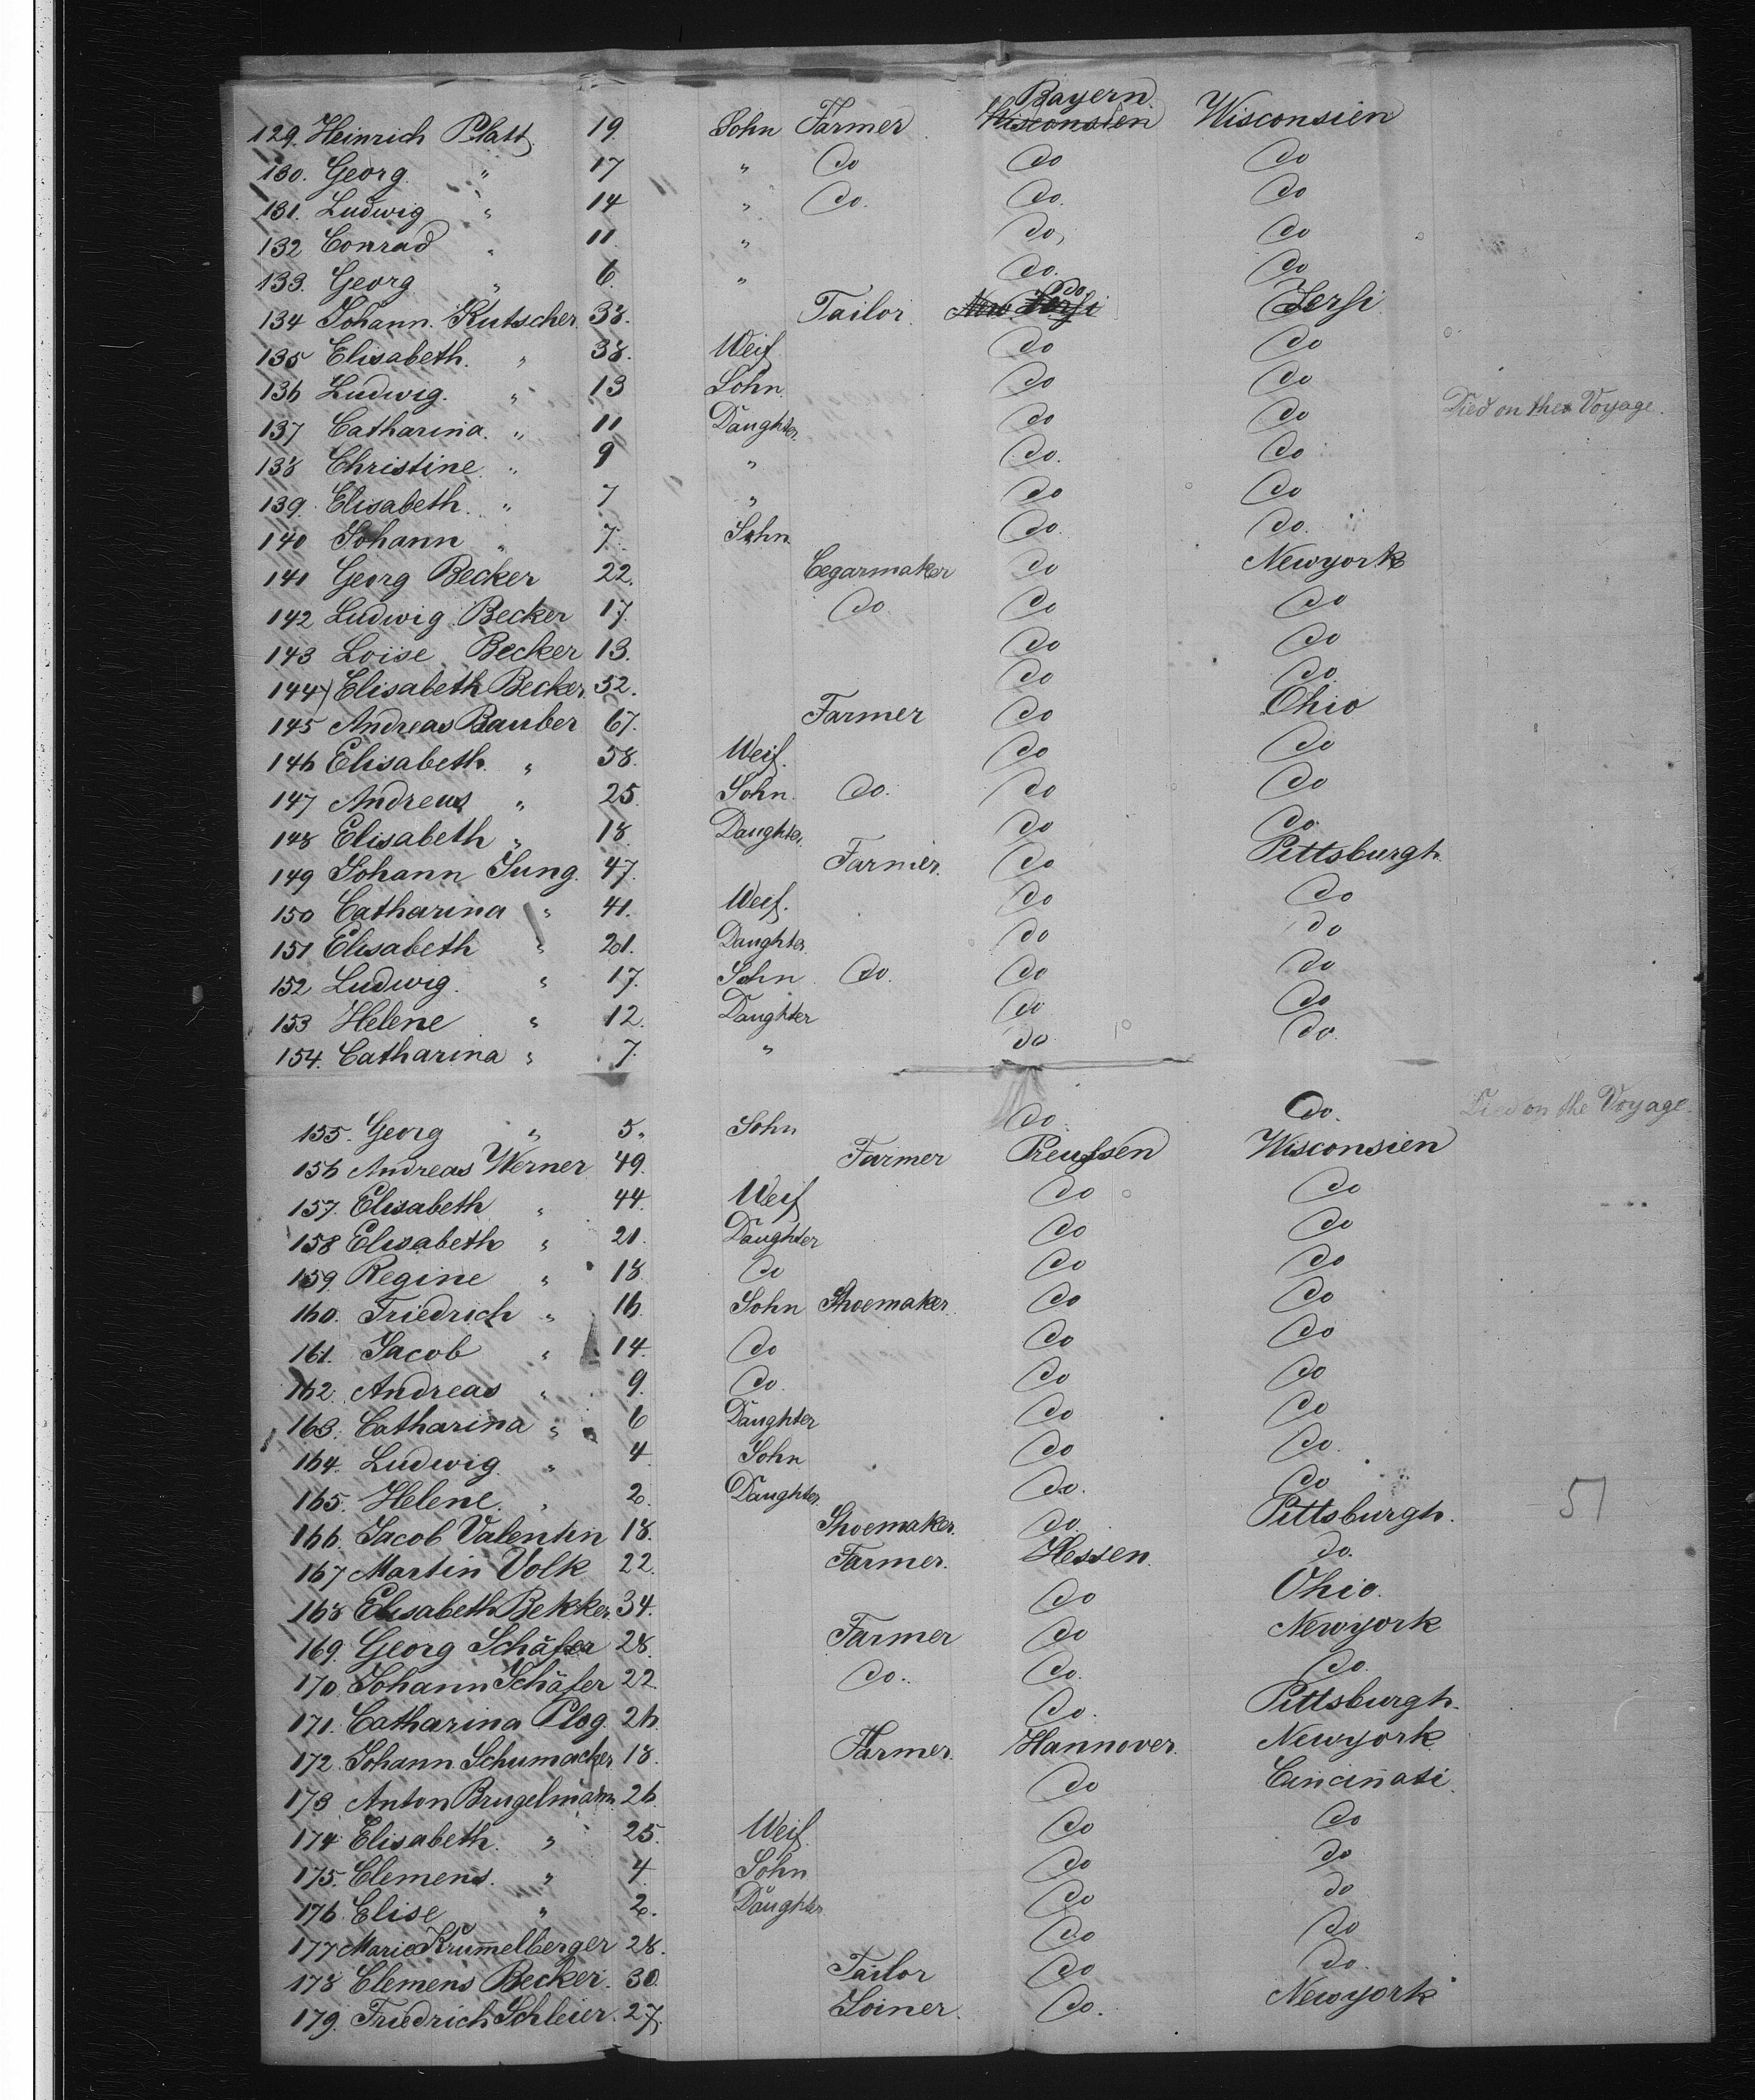 Bayern.
129. Heinrich Platt 19. Sohn Farmer. Wisconsien Wisconsien
130. Georg. " 17 " do do do
131. Ludwig " 14 " do. do. do
132 Conrad " 11. " do, do
133. Georg " 6. " do. do
134 Johann. Kutscher. 38. Tailor. New Jersi do. Jersi
135 Elisabeth. " 38. Weif. do do
136 Ludwig. " 13 Sohn. do do
137 Catharina. " 11 Daughter. do do Died on the Voyage.
138 Christine " 9 " do. do
139. Elisabeth. " 7 " do do
140 Johann " 7. Sohn do. do.
141 Georg Becker 22. Cegarmaker do Newyork
142 Ludwig Becker 17. do. do do
143 Loise Becker 13. do do
144) Elisabeth Becker. 52. do do.
145 Andreas Bauber 67. Farmer do Ohio
146 Elisabeth. " 58. Weif. do do
147 Andreas " 25. Sohn. do. do do
148 Elisabeth " 18. Daughter. do do.
149 Johann Jung. 47. Farmer. do Pittsburgh.
150 Catharina " 41. Weif. do do
151 Elisabeth " 21. Daughter. do do
152 Ludwig. " 17. Sohn do. do do
153 Helene " 12. Daughter do do
154. Catharina " 7. " do do.
155. Georg " 5. Sohn do. do. Died on the Voyage.
156 Andreas Werner 49. Farmer Preußen Wisconsien
157. Elisabeth " 44. Weif do do
158 Elisabeth " 21. Daughter do do
159. Regine " 18 do do do
160. Friedrich " 16. Sohn Shoemaker. do do
161. Jacob " 14. do do do
162. Andreas " 9. do. do do
163. Catharina " 6 Daughter do do
164. Ludwig " 4 Sohn do do.
165. Helene. " 2. Daughter. do. do 51
166. Jacob Valentin 18. Shoemaker. do. Pittsburgh.
167 Martin Volk 22. Farmer. Hessen. do.
168 Elisabeth Bekker. 34. do Ohio.
169. Georg Schäfer 28. Farmer do Newyork
170. Johann Schäfer 22. do. do. do.
171. Catharina Plog. 26. do. Pittsburgh.
172. Johann Schumacher 18. Farmer. Hannover. Newyork
173 Anton Brugelmann. 26. do Cincinati.
174 Elisabeth. " 25. Weif. do do
175. Clemens. " 4. Sohn do do
176. Elise " 2. Daughter do do
177 Marie Krum̄elberger 28. do do
178 Clemens Becker. 30. Tailor do do.
179. Friedrich Schleier. 27. Joiner. do. Newyork